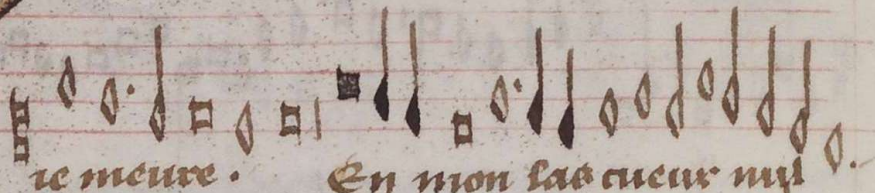 ie meure. En mon las cueur nul